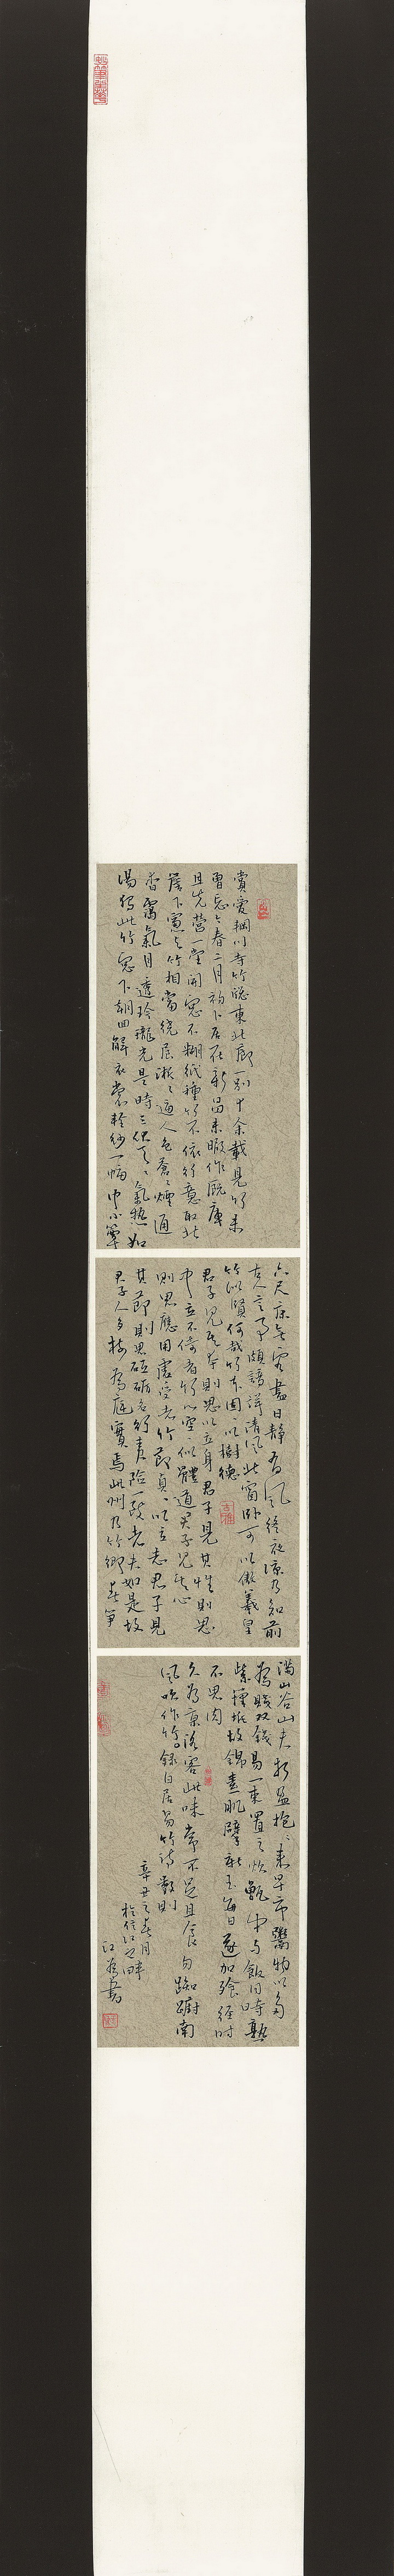 賞愛輞川寺竹窓東北廊一別十余載見竹未
曾忘今春二月初卜居在新昌未暇作厩庫
且先營一堂開窓不糊紙種竹不依行意取北
簷下窓与竹相當繞屋淅々逼人色蒼々煙通
杳靄氣月透玲瓏光是時三伏天々氣熱如
湯獨此竹窓下朝回解衣裳輕紗一幅巾小簟
六尺床無客盡日靜有風終夜涼乃知前
古人言事頗諳詳清風北窗卧可以傲羲皇
竹似賢何哉竹本固々以樹德
君子見其本則思以立身君子見其性則思
中立不倚者竹心空似體道君子見其心
則思應用虛受者竹節貞々以立志君子見
其節則思砥礪名行夷險一致者夫如是故
君子人多樹為庭實焉此州乃竹鄉春筍
滿山谷山夫折盈抱々來早市鬻物以多
為賤双錢易一束置之炊甑中与飯同時熟
紫籜坼故錦素肌擘新玉每日遂加飱經時
不思肉
久為京洛客此味常不足且食勿踟躕南
風吹作竹錄白居易竹詩數則
辛丑之春月
於信江之畔
江書